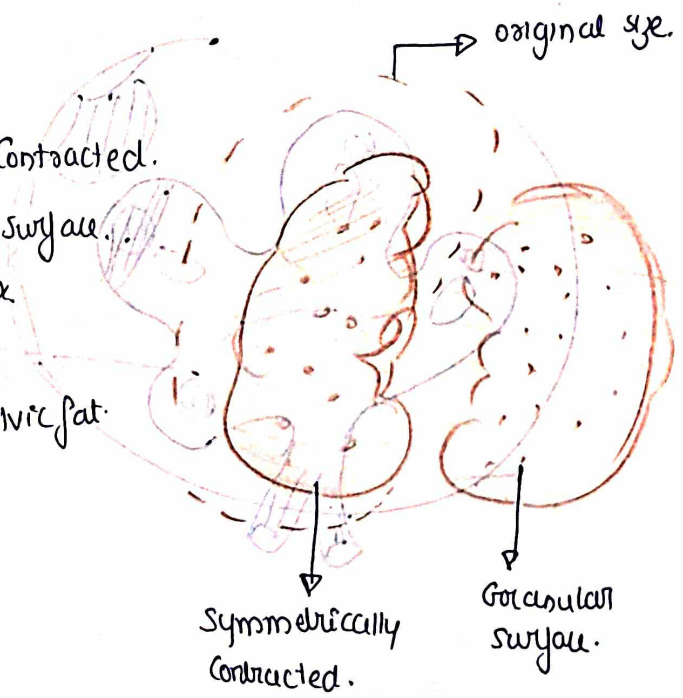 original size.
Contracted.
surface.
x
lvic fat.
Symmetrically
Contracted.
Granular
surface.